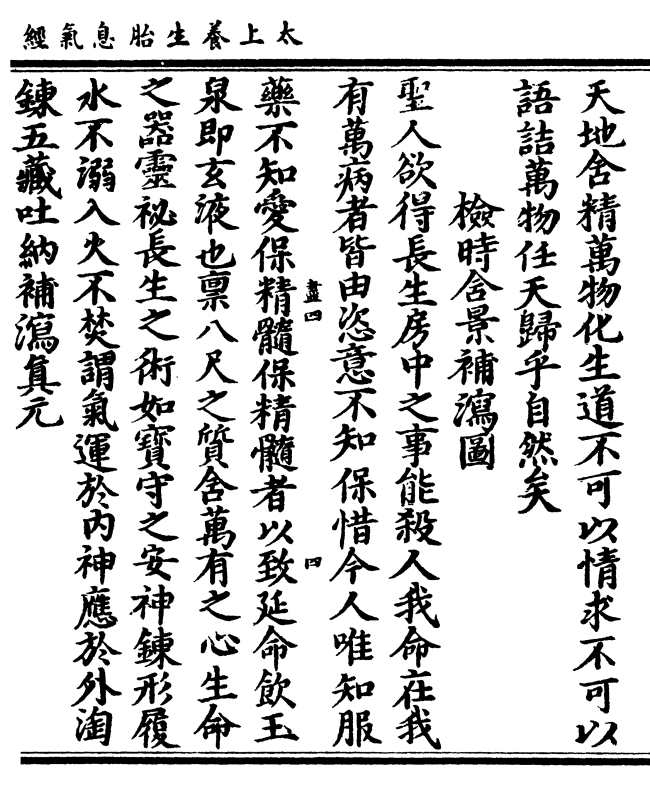 太上養生胎息氣經
天地含精萬物化生道不可以情求不可以
語詰萬物任天歸乎自然矣
檢時含景補瀉圖
聖人欲得長生房中之事能殺人我命在我
有萬病者皆由恣意不知保惜今人唯知服
藥不知愛保精髓保精髓者以致延命飲玉
盡四
四
泉即玄液也稟八尺之質含萬有之心生命
之器靈祕長生之術如寶守之安神鍊形履
水不溺入火不焚謂氣運於內神應於外淘
鍊五藏吐納補瀉真元